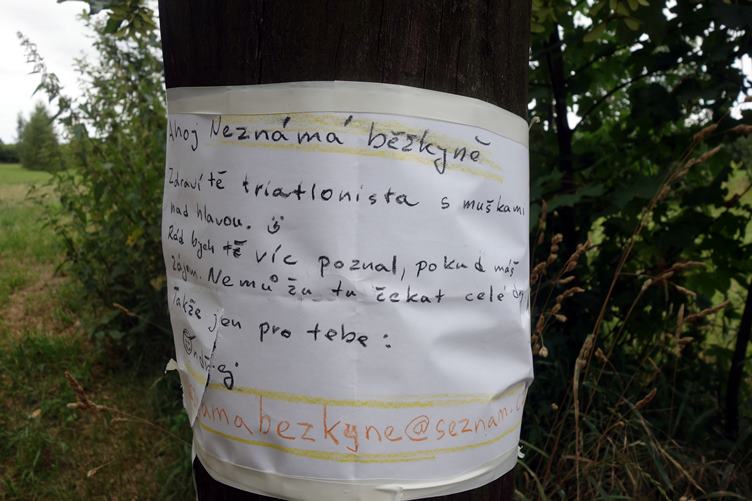 Ahoj Neznámá běžkyně
Zdraví tě triatlonista s muškami
nad hlavou.
Rád bych tě víc poznal, pokud máš
zájem. Nemůžu tu čekat celé dny
Takže jen pro tebe:
amabezkyne@seznam.c